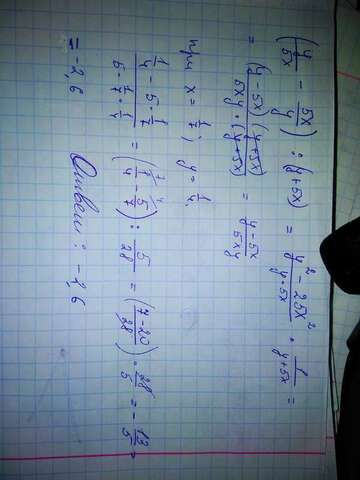 (y/5x - 5x/y) : (y+5x) = (y² - 25x²)/(y·5x) · 1/(y+5x) =
= ((y-5x)·(y+5x))/(5xy·(y+5x)) = (y-5x)/(5xy)
при x = 1/7; y = 1/4.
(1/4 - 5·1/7)/(5·1/7·1/4) = (1/4 - 5/7) : 5/28 = ((7-20)/28) · 28/5 = -13/5 =
= -2,6 Ответ: -2,6